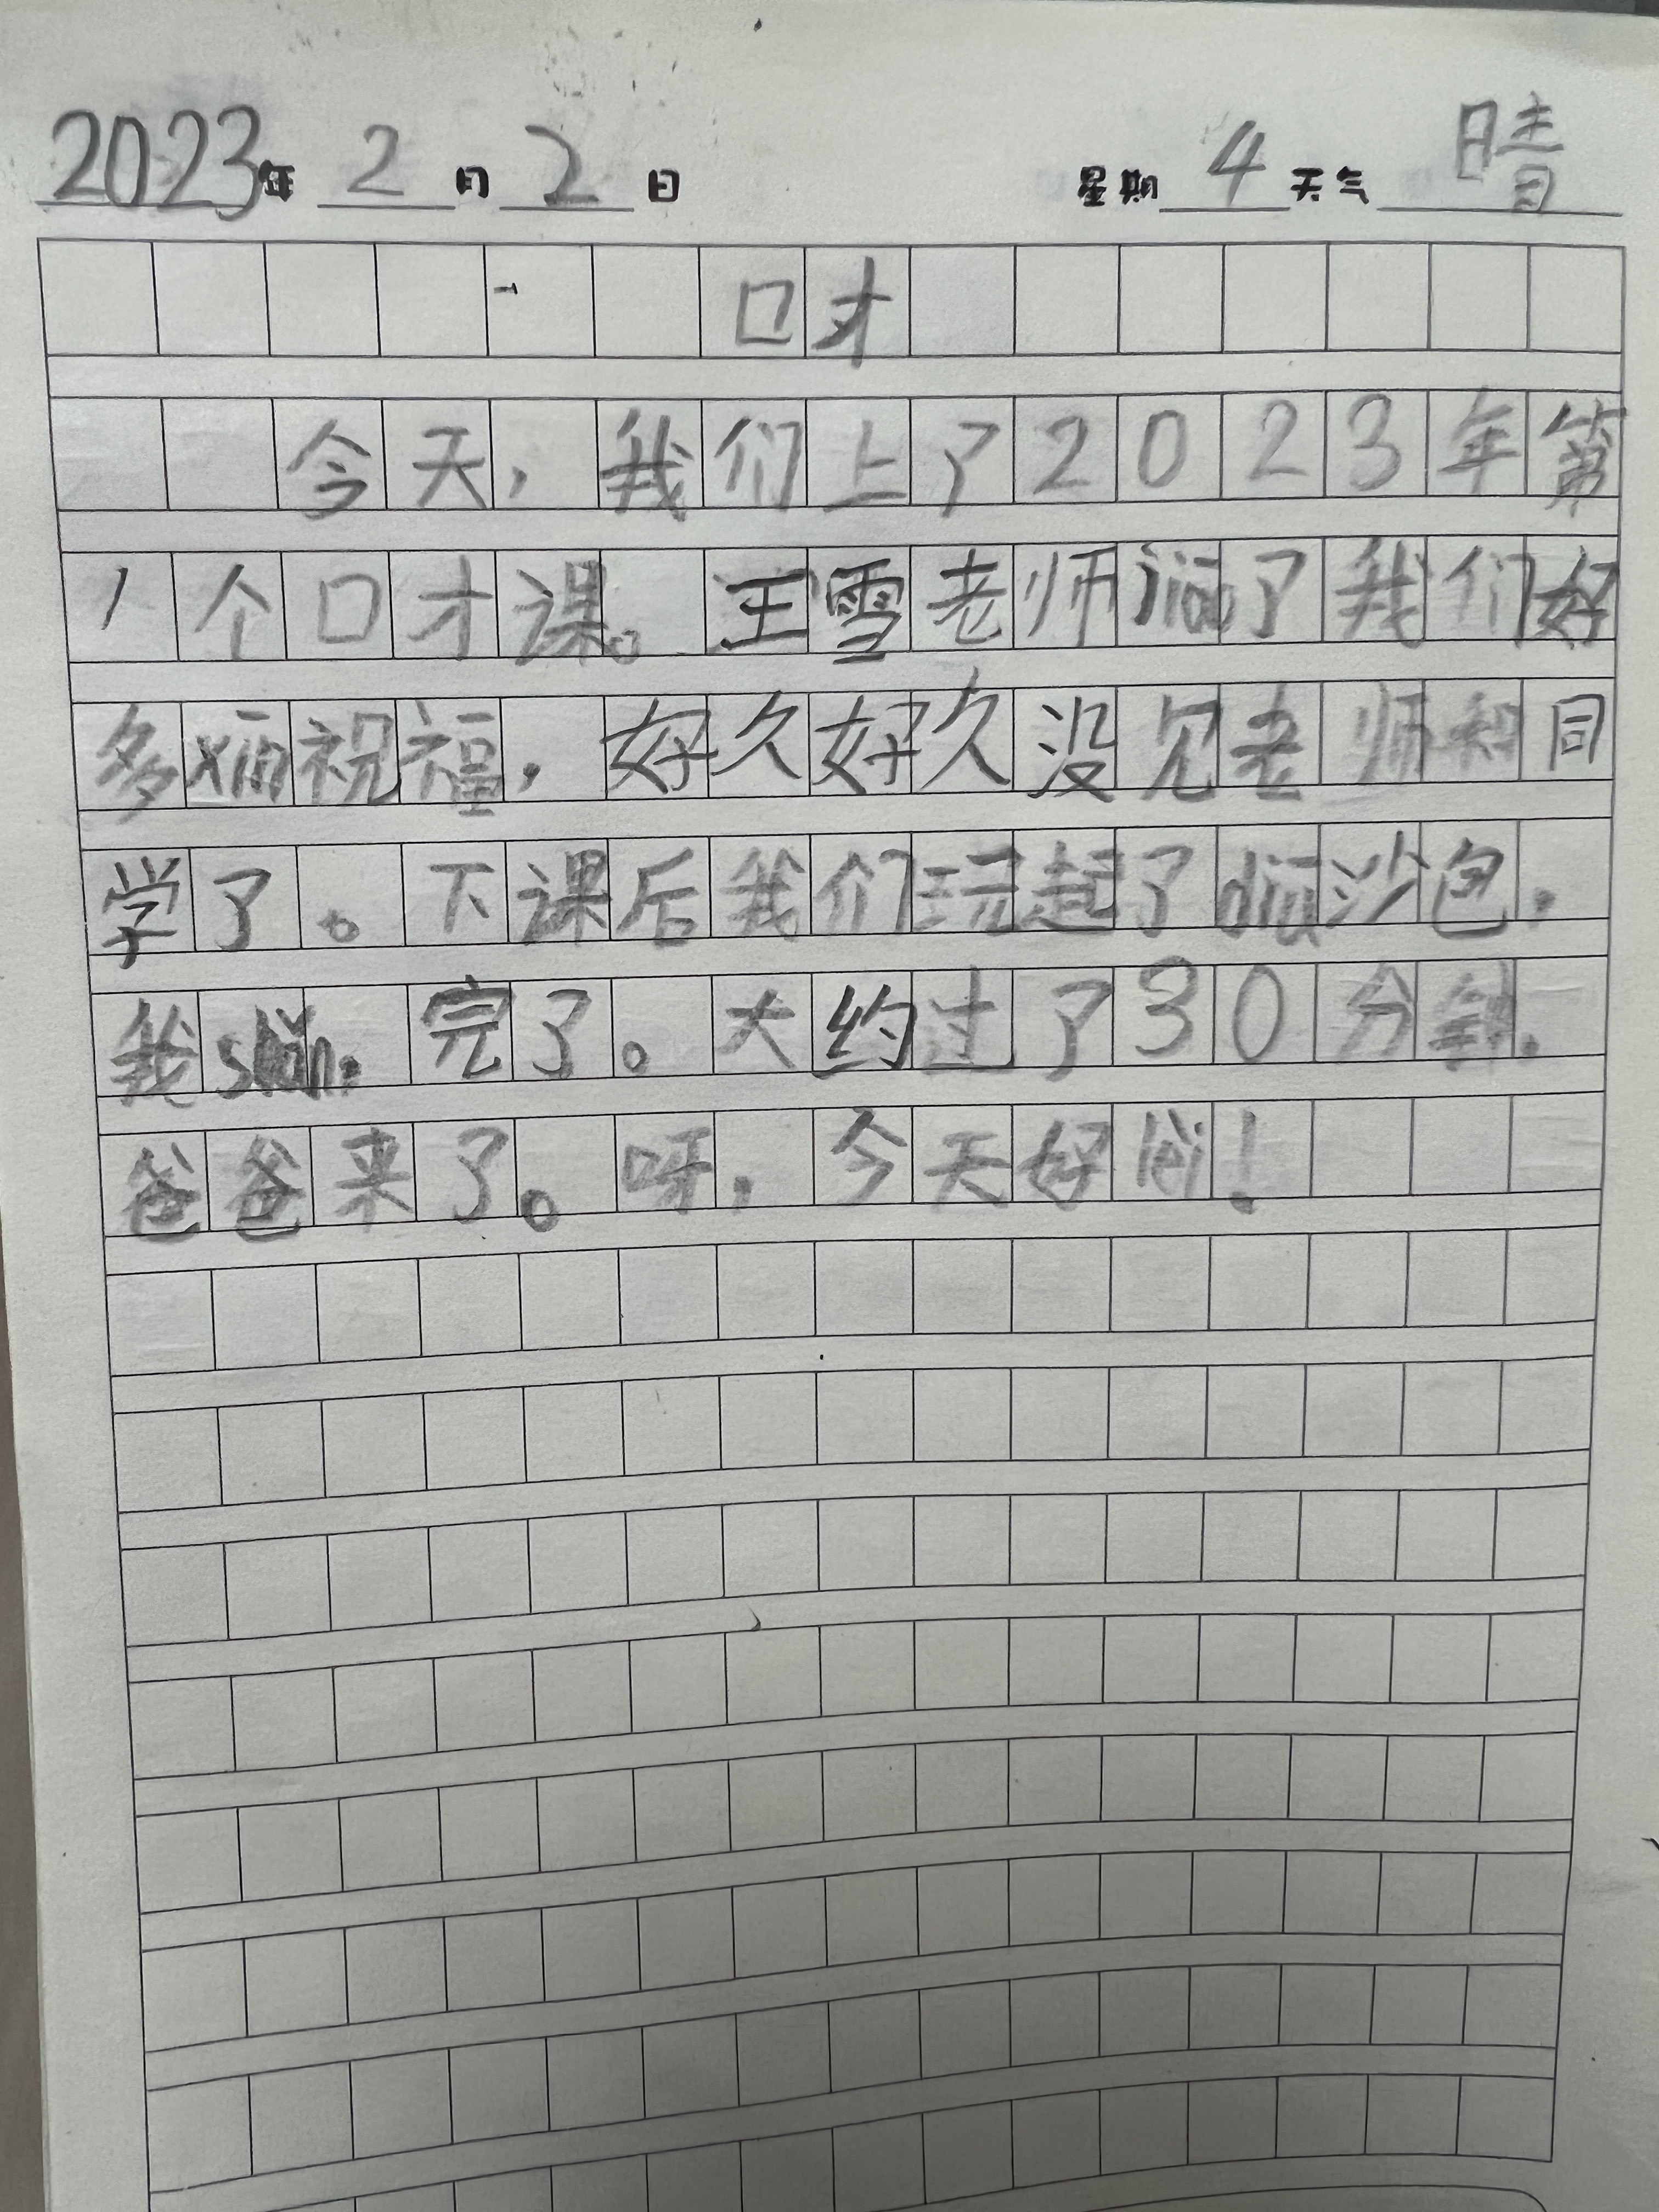 2023年 2 月 2 日 星期 4 天气 晴
口才
今天，我们上了2023年第
1个口才课。王雪老师 了我们好
多xīn祝福，好久好久没见老师和同
学了。下课后我们玩起了diū沙包，
我 完了。大约过了30分钟，
爸爸来了。呀，今天好lèi！